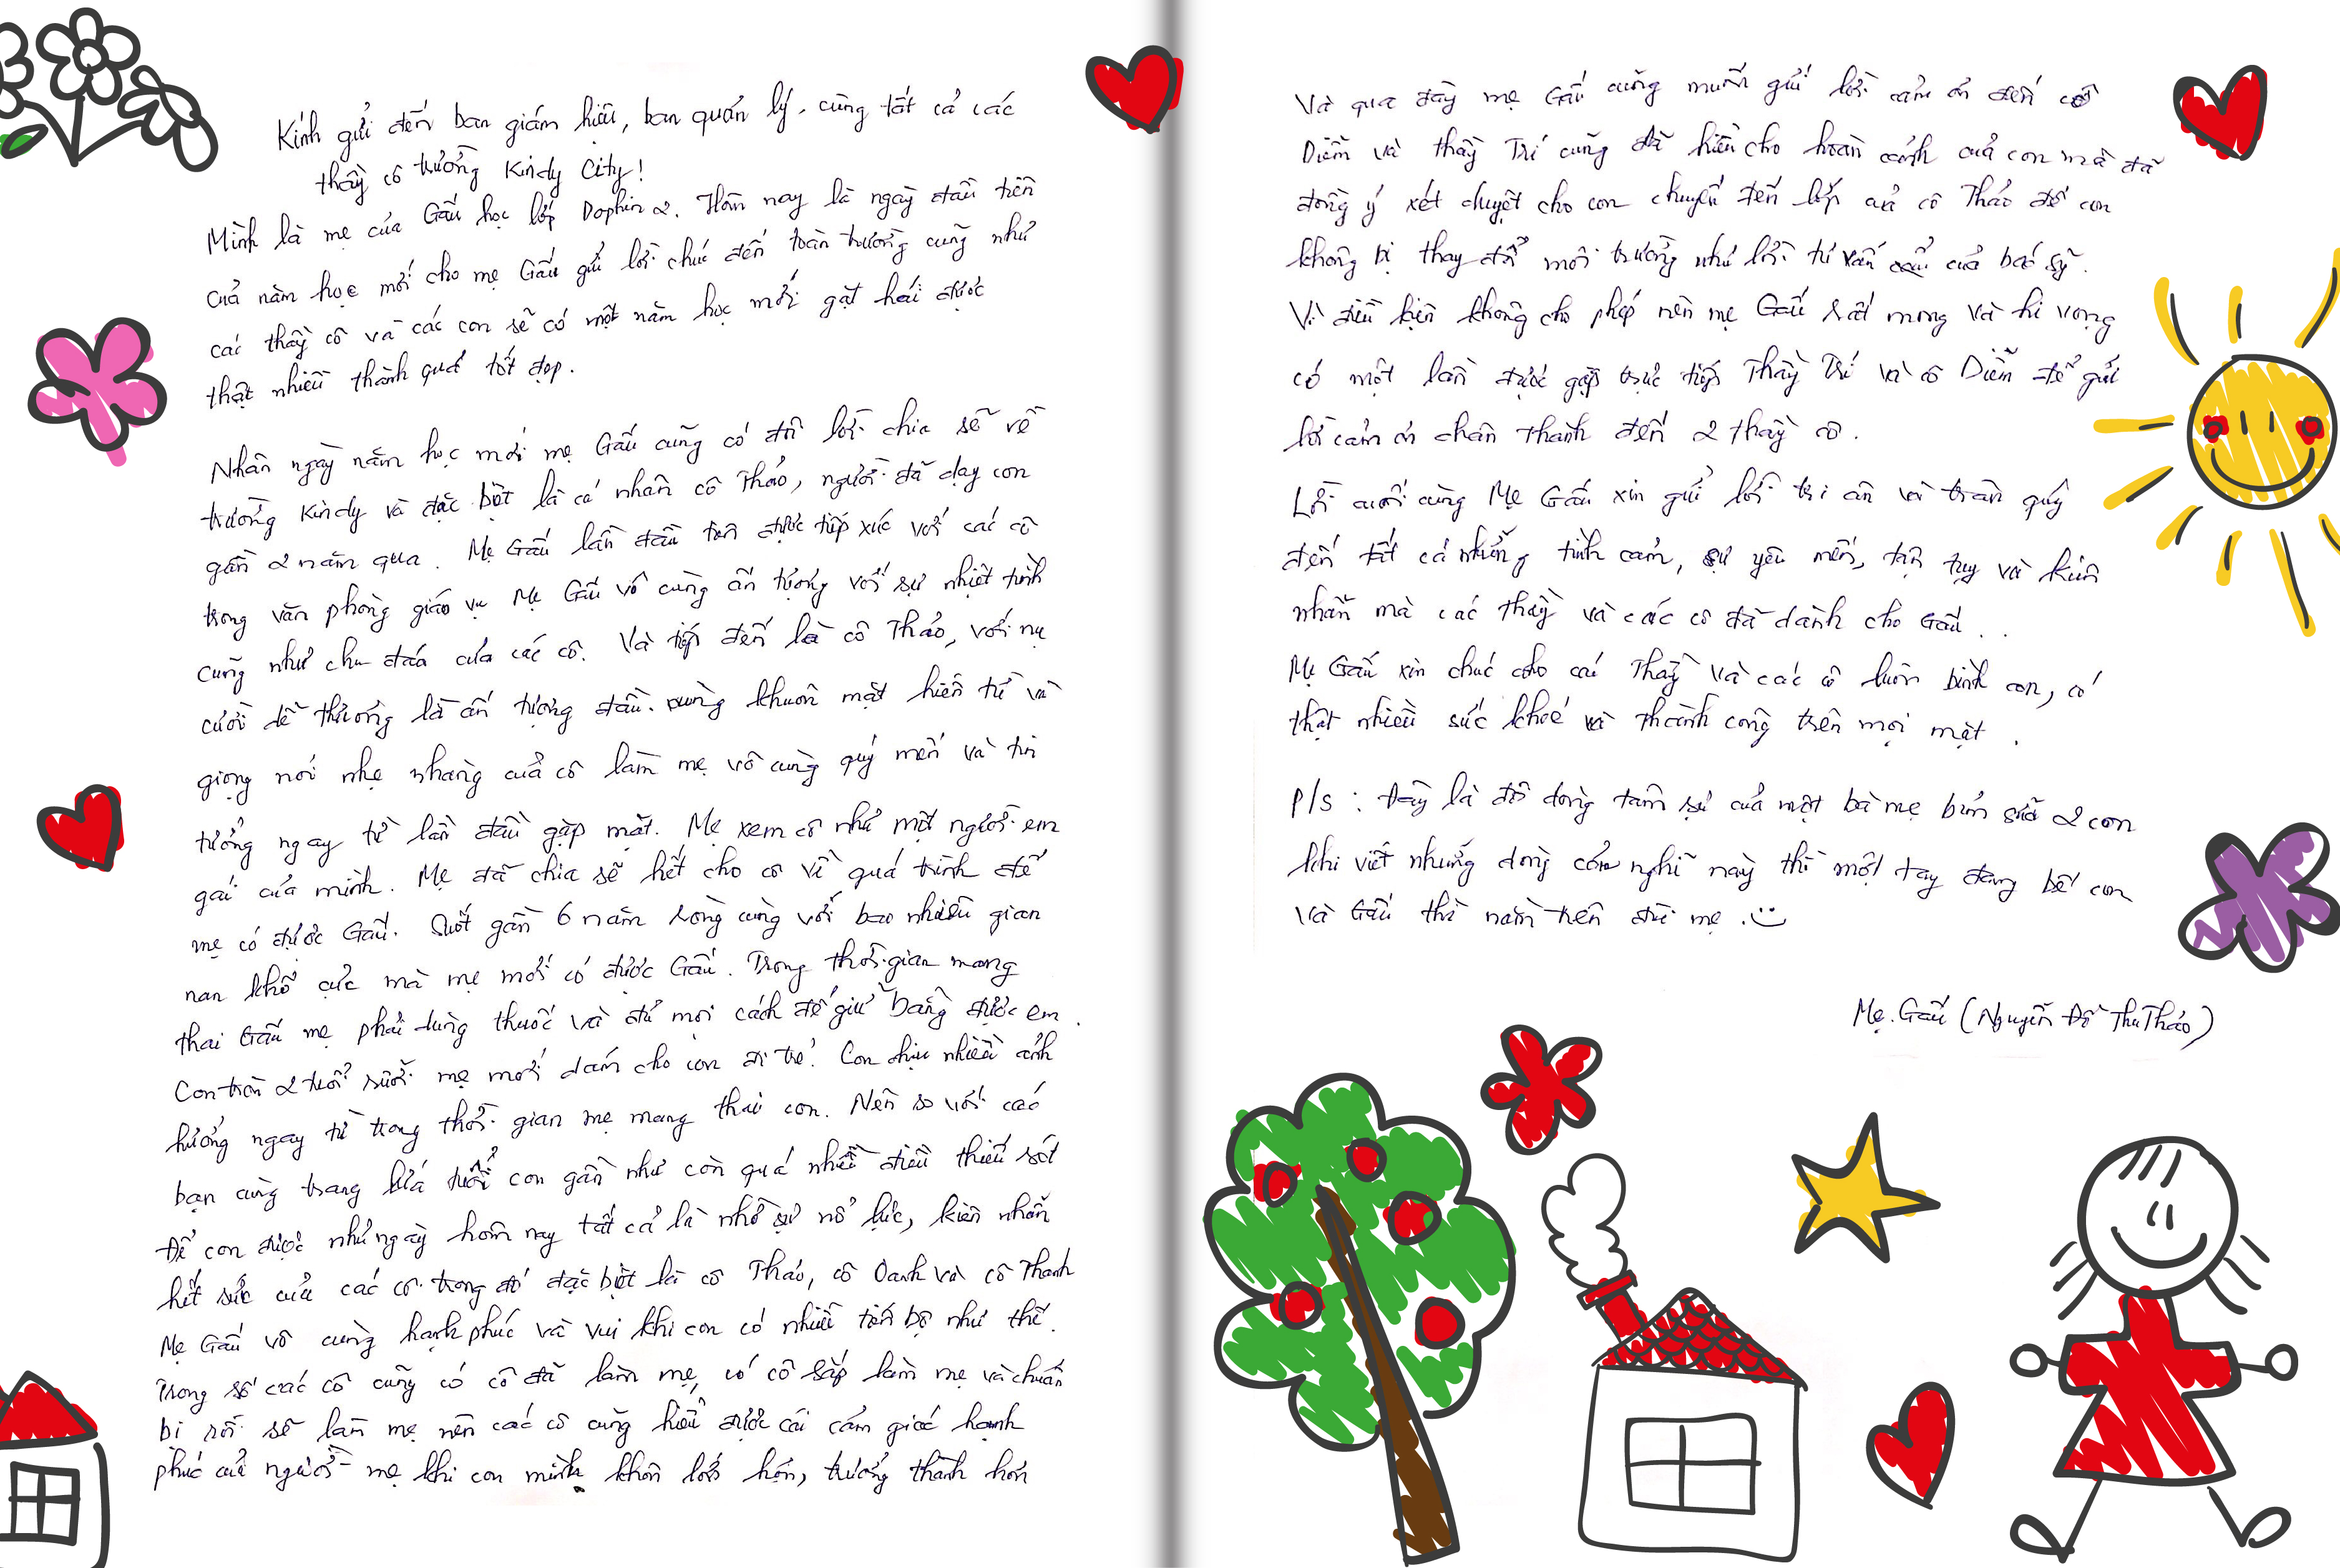 Kính gửi đến ban giám hiệu, ban quản lý. cùng tất cả các
thầy cô trường Kindy City!
Mình là mẹ của Gấu học lớp Dophin 2. Hôm nay là ngày đầu tiên
của năm học mới cho mẹ Gấu gửi lời chúc đến toàn trường cũng như
các thầy cô và các con sẽ có một năm học mới gặt hái được
thật nhiều thành quả tốt đẹp.
Nhân ngày năm học mới mẹ Gấu cũng có đôi lời chia sẽ về
trường Kindy và đặc biệt là cá nhân cô Thảo, người đã dạy con
gần 2 năm qua. Mẹ Gấu lần đầu tiên được tiếp xúc với các cô
trong văn phòng giáo vụ Mẹ Gấu vô cùng ấn tượng với sự nhiệt tình
cũng như chu đáo của các cô. Và tiếp đến là cô Thảo, với nụ
cười dễ thương là ấn tượng đầu. cùng khuôn mặt hiền từ và
giọng nói nhẹ nhàng của cô làm mẹ vô cùng quý mến và tin
tưởng ngay từ lần đầu gặp mặt. Mẹ xem cô như một người em
gái của mình. Mẹ đã chia sẽ hết cho cô về quá trình để
mẹ có được Gấu. Suốt gần 6 năm ròng cùng với bao nhiêu gian
nan khổ cực mà mẹ mới có được Gấu. Trong thời gian mang
thai Gấu mẹ phải dùng thuốc và đủ mọi cách để giữ bằng được em.
Con tròn 2 tuổi rưỡi mẹ mới dám cho con đi trẻ. Con chịu nhiều ảnh
hưởng ngay từ trong thời gian mẹ mang thai con. Nên so với các
bạn cùng trang lứa tuổi con gần như còn quá nhiều điều thiếu sót
Để con được như ngày hôm nay tất cả là nhờ sự nổ lực, kiên nhẫn
hết sức của các cô. trong đó đặc biệt là cô Thảo, cô Oanh và cô Thanh
Mẹ Gấu vô cùng hạnh phúc và vui khi con có nhiều tiến bộ như thế.
Trong số các cô cũng có cô đã làm mẹ, có cô sắp làm mẹ và chuẩn
bị rồi sẽ làm mẹ nên các cô cũng hiểu được cái cảm giác hạnh
phúc của người mẹ khi con mình khôn lớn hơn, trưởng thành hơn
Và qua đây mẹ Gấu cũng muốn gửi lời cảm ơn đến cô
Diễm và thầy Trí cũng đã hiểu cho hoàn cảnh của con mà đã
đồng ý xét duyệt cho con chuyển đến lớp của cô Thảo để con
không bị thay đổi môi trường như lời tư vấn của bác sỹ.
Vì điều kiện không cho phép nên mẹ Gấu rất mong và hi vọng
có một lần được gặp trực tiếp Thầy Trí và cô Diễm để gửi
lời cảm ơn chân thành đến 2 thầy cô.
Lời cuối cùng Mẹ Gấu xin gửi lời tri ân và trân quý
đến tất cả những tình cảm, sự yêu mến, tận tụy và kiên
nhẫn mà các thầy và các cô đã dành cho Gấu..
Mẹ Gấu xin chúc cho các Thầy và các cô luôn bình an, có
thật nhiều sức khoẻ và thành công trên mọi mặt.
P/s: Đây là đôi dòng tâm sự của một bà mẹ bỉm sữa 2 con
khi viết những dòng cảm nghĩ này thì một tay đang bế con
và Gấu thì nằm trên đùi mẹ. :)
Mẹ Gấu (Nguyễn Đỗ Thu Thảo)